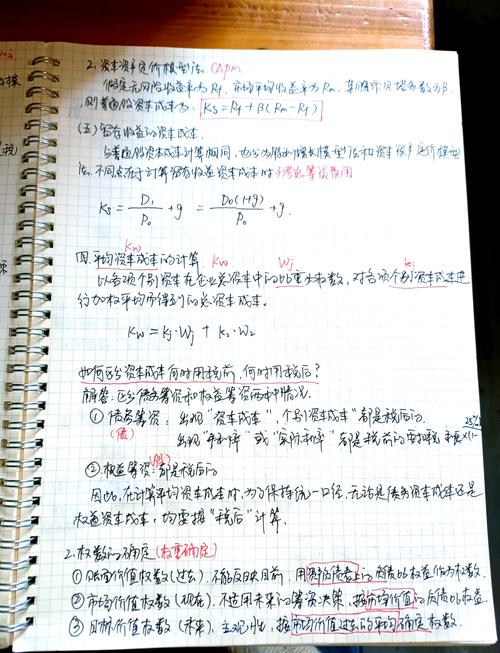 2. 资本资产定价模型法. CAPM
假定无风险收益率为Rf, 市场平均收益率为Rm, 某股票贝塔系数为β,
则普通股资本成本为: Ks=Rf+β(Rm-Rf)
(五) 留存收益的资本成本.
与普通股资本成本计算相同, 也分为股利增长模型法和资本资产定价模型
法, 不同点在于计算留存收益资本成本时不考虑筹资费用
Ks = D1/P0 + g = D0(1+g)/P0 + g.
Kw
四. 平均资本成本的计算. Kw Wj kj
以各项个别资本在企业总资本中的比重为权数, 对各项个别资本成本进
行加权平均而得到的总资本成本.
Kw = Kj·Wj + K2·W2
如何区分资本成本何时用税前, 何时用税后?
解答: 区分债务筹资和权益筹资两种情况.
① 债务筹资: 出现"资本成本", 个别资本成本"都是税后的. 25%
(债) 出现"年利率"或"实际利率"都是税前的
② 权益筹资: 都是税后的
(股)
因此, 在计算平均资本成本时, 为了保持统一口径, 无论是债务资本成本还是
权益资本成本, 均需按"税后"计算.
2. 权数的确定 (权重确定)
① 账面价值权数 (过去). 不能反映目前, 用资产负债表上的负债比权益作为权数.
② 市场价值权数 (现在). 不适用未来的筹资决策, 按市场价值的负债比权益.
③ 目标价值权数 (未来). 主观性, 按市场价值过去的平均确定权数.